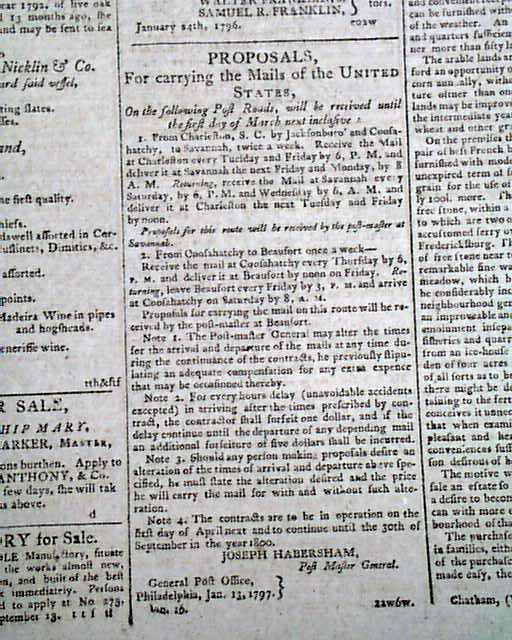 year 1792, of live oak
13 months ago, she
and may be sent to sea
Nicklin & Co.
said vessel,
ting slates.
and,
he first quality.
hiefs.
dswell assorted in Cor-
ussinets, Dimities, &c.
assorted.
points.
Madeira Wine in pipes
and hogsheads.
eneriffe wine.
R SALE,
HIP MARY,
PARKER, MASTER,
ons burthen. Apply to
ANTHONY, & Co.
few days, she will tak
as above.
d
RY for Sale.
the works almost new,
en, and built of the best
immediately. Persons
d to apply at No 273,
SAMUEL R. FRANKLIN, } tors.
January 24th, 1796. eo2w
PROPOSALS,
For carrying the Mails of the UNITED
STATES,
On the following Post Roads, will be received until
the first day of March next inclusive :
1. From Charleston, S. C. by Jacksonboro' and Coosa-
hatchy, to Savannah, twice a week. Receive the Mail
at Charleston every Tuesday and Friday by 6, P. M. and
deliver it at Savannah the next Friday and Monday, by 8
A. M. Returning, receive the Mail at Savannah every
Saturday, by 6, P. M. and Wednesday by 6, A. M. and
deliver it at Charleston the next Tuesday and Friday
by noon.
Proposals for this route will be received by the post-master at
Savannah.
2. From Coosahatchy to Beaufort once a week—
Receive the mail at Coosahatchy every Thursday by 6,
P. M. and deliver it at Beaufort by noon on Friday. Re-
turning, leave Beaufort every Friday by 3, P. M. and arrive
at Coosahatchy on Saturday by 8, A. M.
Proposals for carrying the mail on this route will be re-
ceived by the post-master at Beaufort.
Note 1. The Post-master General may alter the times
for the arrival and departure of the mails at any time du-
ring the continuance of the contracts, he previously stipu-
lating an adequate compensation for any extra expence
that may be occasioned thereby.
Note 2. For every hours delay (unavoidable accidents
excepted) in arriving after the times prescribed by con-
tract, the contractor shall forfeit one dollar, and if the
delay continue until the departure of any depending mail
an additional forfeiture of five dollars shall be incurred.
Note 3. Should any person making proposals desire an
alteration of the times of arrival and departure above spe-
cified, he must state the alteration desired and the price
he will carry the mail for with and without such alte-
ration.
Note 4. The contracts are to be in operation on the
first day of April next and to continue until the 30th of
September in the year 1800.
JOSEPH HABERSHAM,
Post Master General.
General Post Office,
Philadelphia, Jan. 13, 1797. }
Jan. 16. 22w6w.
can be furnished with
of the weather. An
and quarters sufficient
ner more than fifty la
The arable lands ar
ford an opportunity o
corn annually, withou
ture other than one
lands may be improve
the intermediate year
wheat and other gra
On the premises th
pair of best French b
furnished with mode
unexpired term of fo
grain for the use of
ly 100l. more. Th
free stone, within
to which are two o
accustomed ferry
Fredericksburg. T
of free stone near t
remarkable fine wa
meadow, which b
be considerably inc
neighbourhood gen
an improveable and
fisheries and quarr
from an ice-house
den of four acres
of all sorts as to be
there might be d
taining to the fer
conceives it unnec
that when exami
pleasant and hea
conveniences suff
son desirous of h
The motive w
sale as offered
a desire to becom
can with more
bourhood of tha
The purchase
in families, eithe
of the purchase
made easy, the
Chatham, (